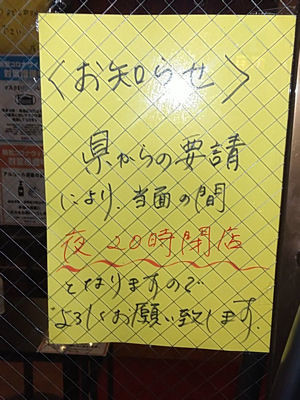 〈お知らせ〉
県からの要請
により、当面の間
夜 20時閉店
となりますので
よろしくお願い致します.